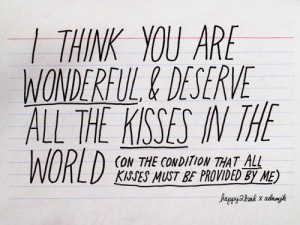 I THINK YOU ARE
WONDERFUL, & DESERVE
ALL THE KISSES IN THE
WORLD (ON THE CONDITION THAT ALL
KISSES MUST BE PROVIDED BY ME)